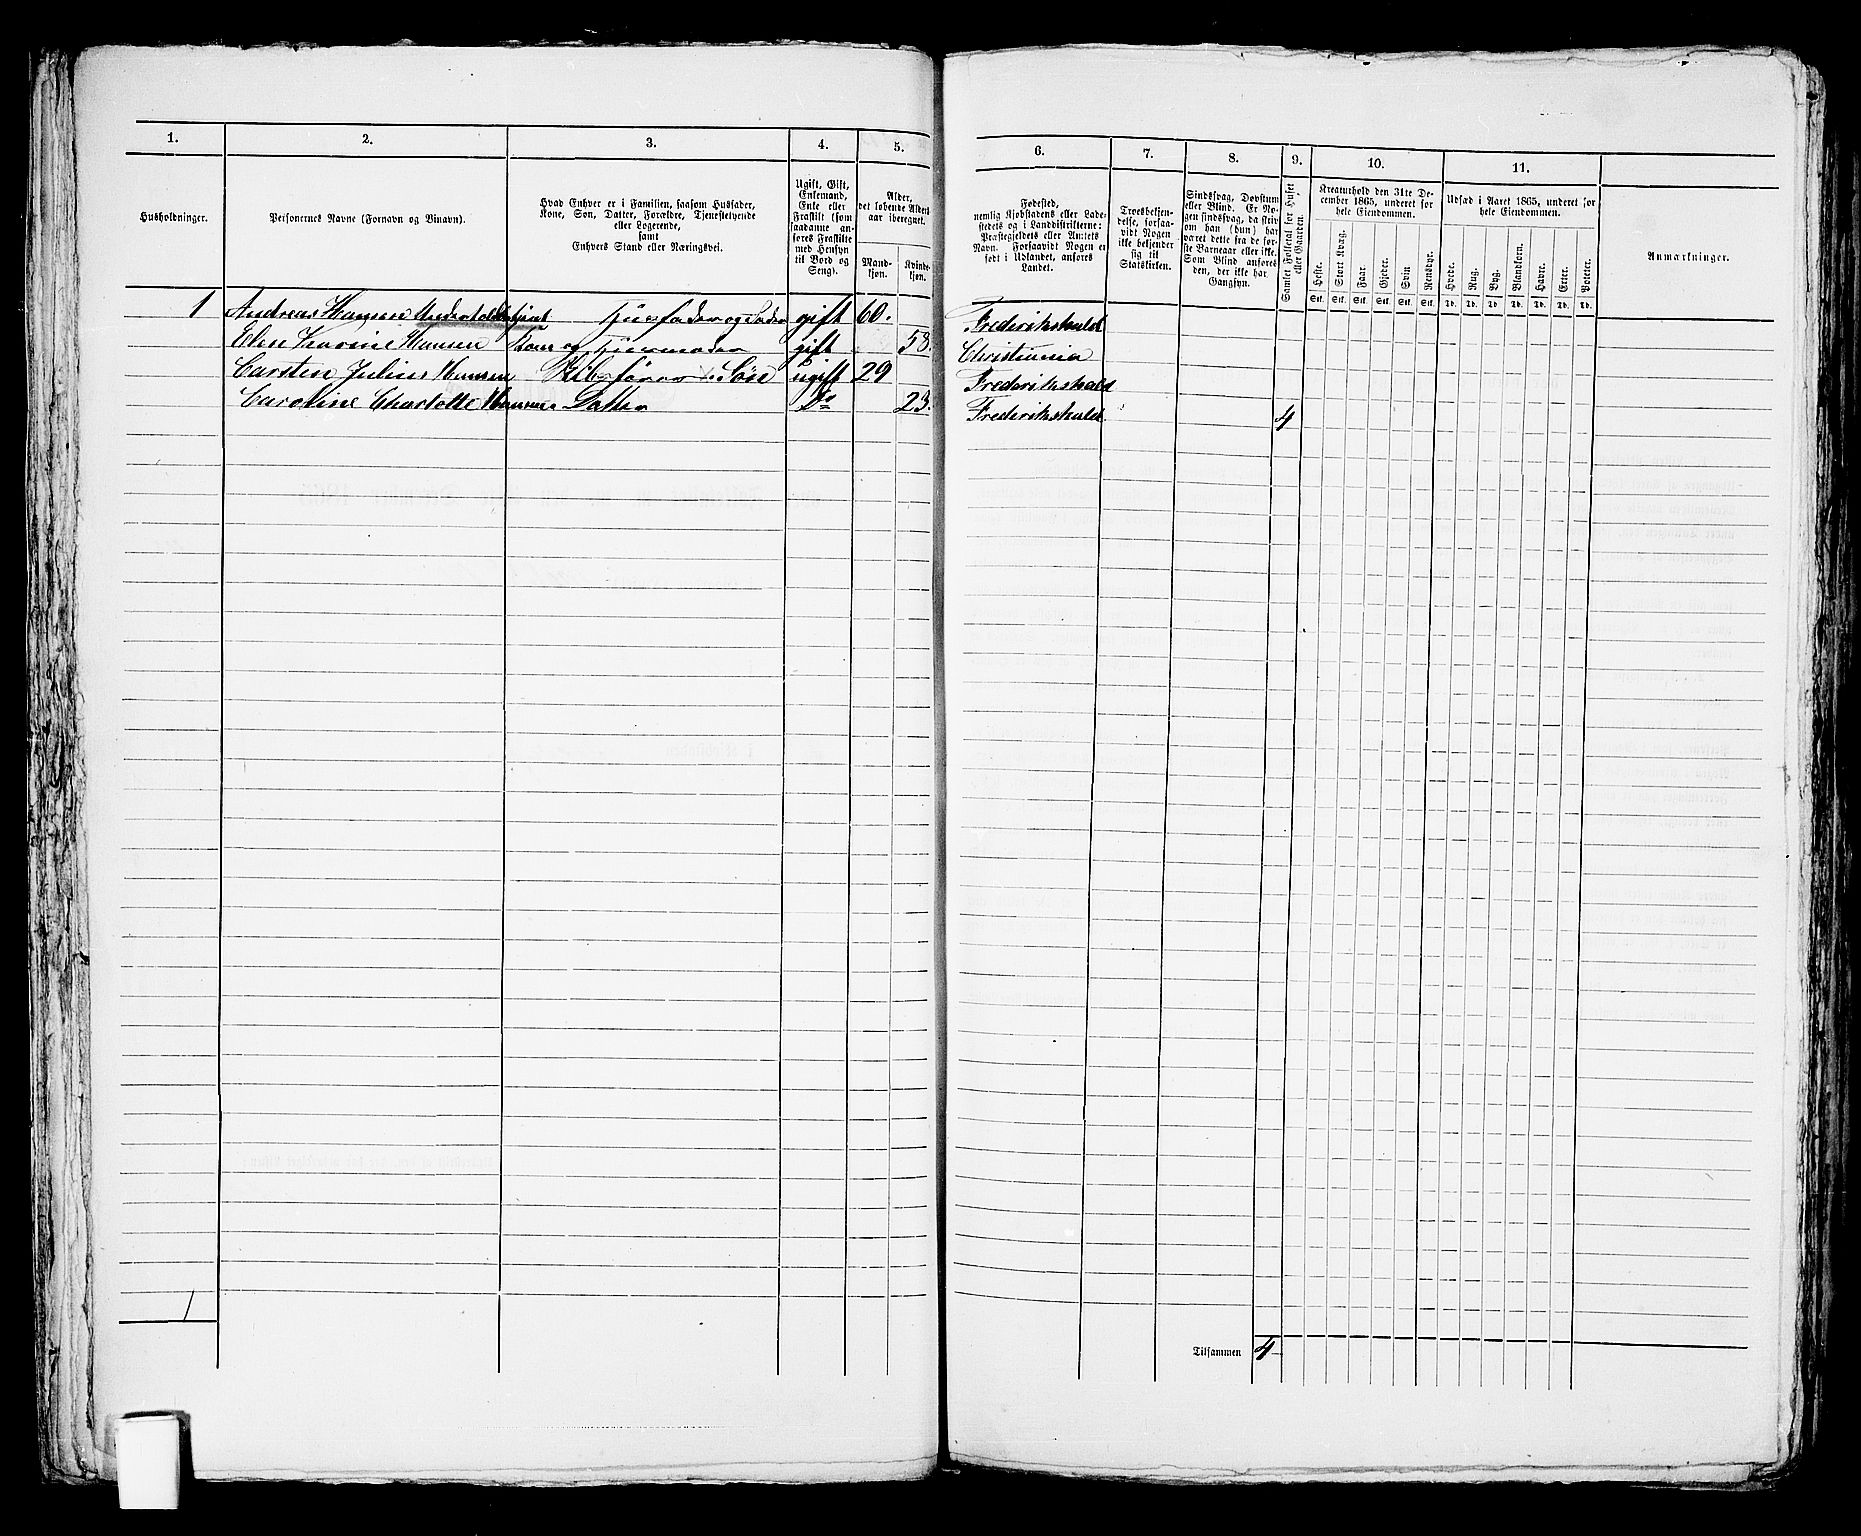 1. 2. 3. 4. 5.
Husholdninger.
Personernes Navne (Fornavn og Binavn).
Hvad Enhver er i Familien, saasom Husfader,
Kone, Søn, Datter, Forældre, Tjenestetyende
eller Logerende,
samt
Enhvers Stand eller Næringsvei.
Ugift, Gift,
Enkemand,
Enke eller
Fraskilt (som
saadanne an-
føres Fraskilte
med Hensyn
til Bord og
Seng).
Alder,
det løbende Alders-
aar iberegnet.
Mand-
kjøn.
Kvinde-
kjøn.
1 Andreas Hansen Husfader og gift 60.
Elen Karine Hansen Kone og Huusmoder gift 58.
Carsten Julius Hansen Skibsfører Søn ugift 29
Caroline Charlotte Hansen Datter Do 23.
1
6. 7. 8. 9. 10. 11.
Fødested,
nemlig Kjøbstadens eller Lade-
stedets og i Landdistrikterne:
Præstegjeldets eller Amtets
Navn. Forsaavidt Nogen er
født i Udlandet, anføres
Landet.
Troesbekjen-
delse, forsaa-
vidt Nogen
ikke bekjender
sig til
Statskirken.
Sindssvag, Døvstum
eller Blind. Er No-
gen sindssvag, da skriv
om han (hun) har
været dette fra de før-
ste Barneaar eller ikke.
Som Blind anføres
den, der ikke har
Gangsyn.
Samlet Folketal for Huset
eller Gaarden.
Kreaturhold den 31te De-
cember 1865, underet for
hele Eiendommen.
Heste. Stort Kvæg. Faar. Gjeder. Svin Rensdyr.
Stk. Stk. Stk. Stk. Stk. Stk.
Udsæd i Aaret 1865, underet for
hele Eiendommen.
Hvede. Rug. Byg. Blandkorn. Havre. Erter. Poteter.
Td. Td. Td. Td. Td. Td. Td.
Anmærkninger.
Frederikshald
Christiania
Frederikshald
Frederikshald 4
Tilsammen 4